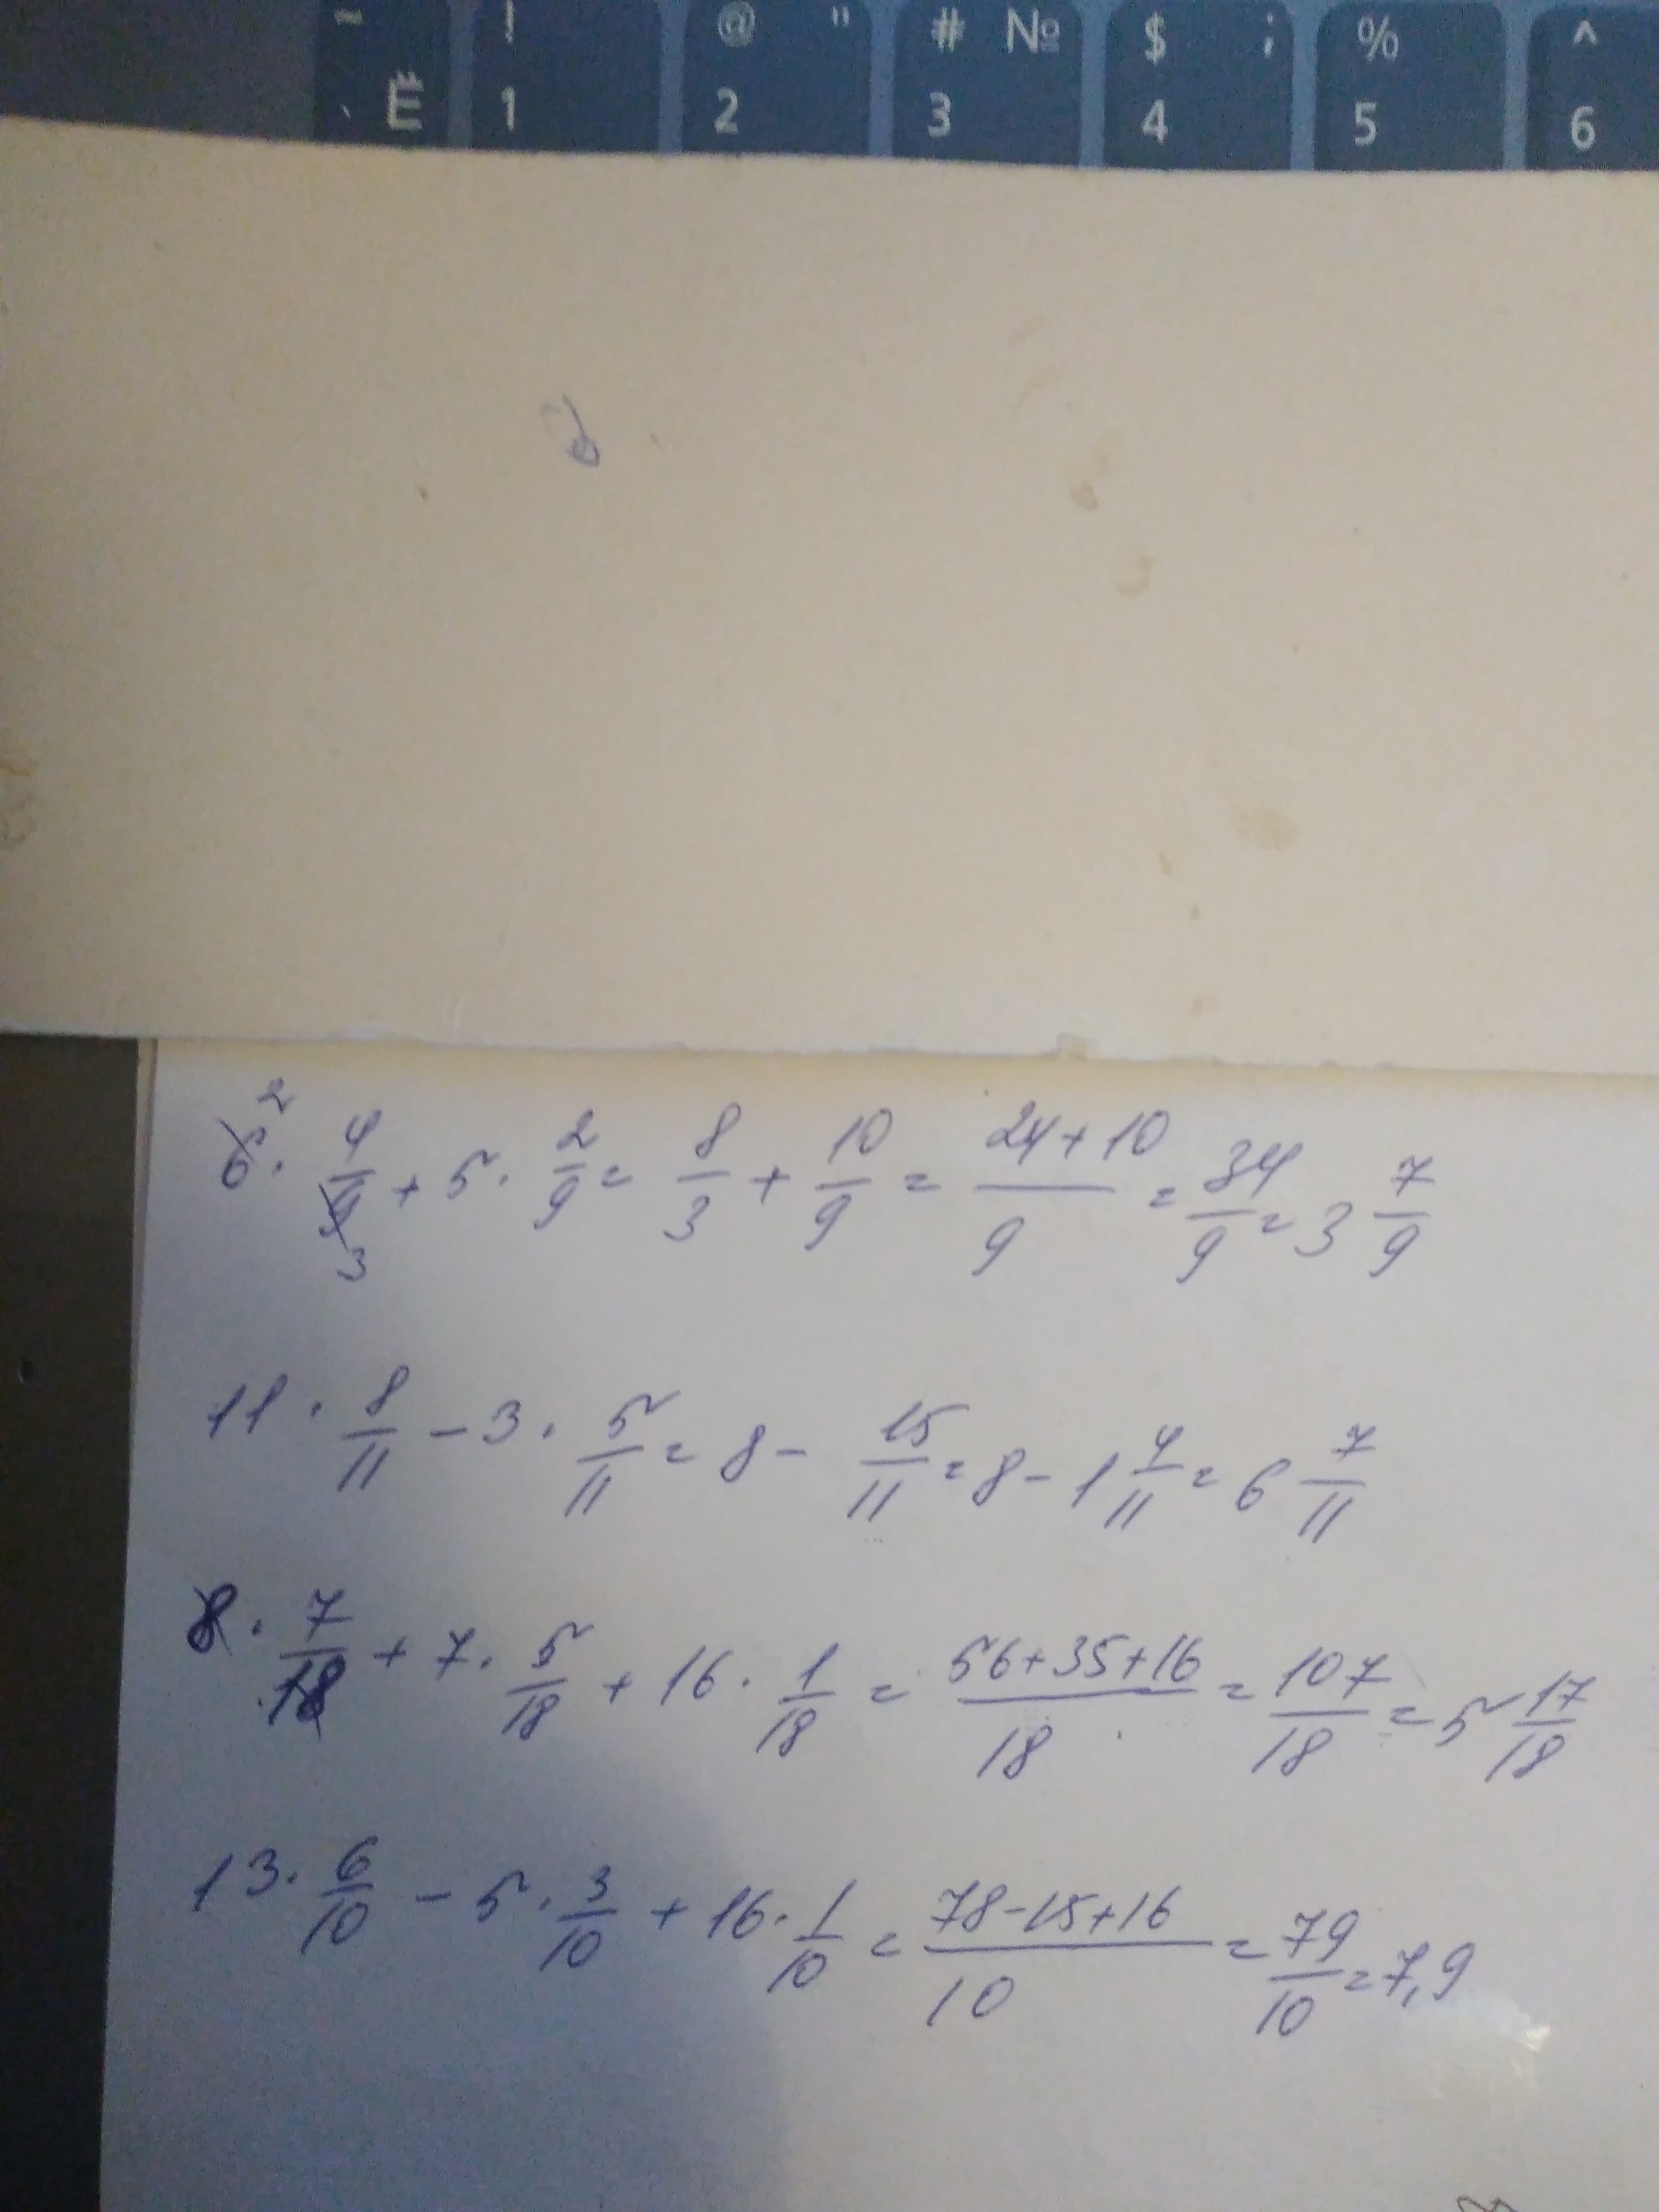 ~ ! @ " # № $ ; % ^
` Ё 1 2 3 4 5 6
6² · 4/9 3 + 5 · 2/9 = 8/3 + 10/9 = 24+10/9 = 34/9 = 3 7/9
11 · 8/11 - 3 · 5/11 = 8 - 15/11 = 8 - 1 4/11 = 6 7/11
8 · 7/18 + 7 · 5/18 + 16 · 1/18 = 56+35+16/18 = 107/18 = 5 17/18
13 · 6/10 - 5 · 3/10 + 16 · 1/10 = 78-15+16/10 = 79/10 = 7,9